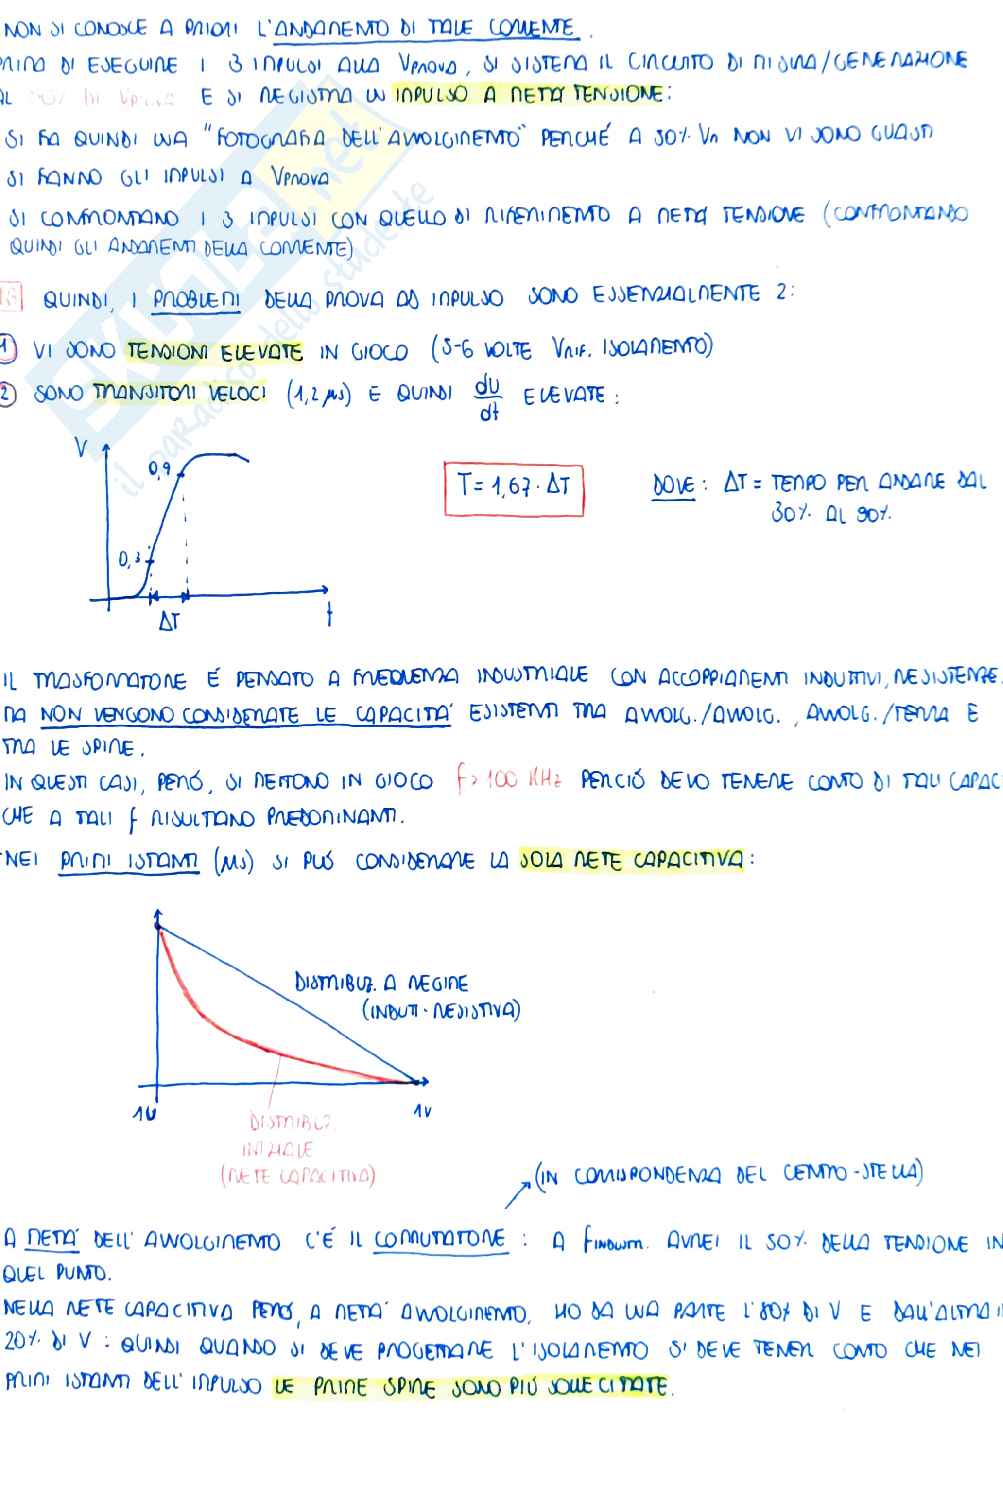 NON SI CONOSCE A PRIORI L'ANDAMENTO DI TALE CORRENTE.
PRIMA DI ESEGUIRE I 3 IMPULSI ALLA VPROVA, SI SISTEMA IL CIRCUITO DI MISURA/GENERAZIONE
AL 50% DI VPROVA E SI REGISTRA UN IMPULSO A METÀ TENSIONE:
SI FA QUINDI UNA "FOTOGRAFIA DELL'AVVOLGIMENTO" PERCHÉ A 50% Vn NON VI SONO GUASTI
SI FANNO GLI IMPULSI A VPROVA
SI CONFRONTANO I 3 IMPULSI CON QUELLO DI RIFERIMENTO A METÀ TENSIONE (CONFRONTANDO
QUINDI GLI ANDAMENTI DELLA CORRENTE)
QUINDI, I PROBLEMI DELLA PROVA AD IMPULSO SONO ESSENZIALMENTE 2:
1 VI SONO TENSIONI ELEVATE IN GIOCO (5-6 VOLTE VRIF. ISOLAMENTO)
2 SONO TRANSITORI VELOCI (1,2 μs) E QUINDI dU/dt ELEVATE:
V
0,9
T = 1,67 · ΔT
DOVE: ΔT = TEMPO PER ANDARE DAL
30% AL 90%
0,3
ΔT
t
IL TRASFORMATORE É PENSATO A FREQUENZA INDUSTRIALE CON ACCOPPIAMENTI INDUTTIVI, RESISTENZE.
MA NON VENGONO CONSIDERATE LE CAPACITÀ ESISTENTI TRA AVVOLG./AVVOLG., AVVOLG./TERRA E
TRA LE SPIRE.
IN QUESTI CASI, PERÓ, SI METTONO IN GIOCO f>100 KHz PERCIÓ DEVO TENERE CONTO DI TALI CAPAC
CHE A TALI f RISULTANO PREDOMINANTI.
NEI PRIMI ISTANTI (μs) SI PUÓ CONSIDERARE LA SOLA RETE CAPACITIVA:
DISTRIBUZ. A REGIME
(INDUTT-RESISTIVA)
1U
1V
DISTRIBUZ.
INIZIALE
(RETE CAPACITIVA)
(IN CORRISPONDENZA DEL CENTRO-STELLA)
A METÀ DELL'AVVOLGIMENTO C'É IL COMMUTATORE: A fINDUSTR. AVREI IL 50% DELLA TENSIONE IN
QUEL PUNTO.
NELLA RETE CAPACITIVA PERÓ, A METÀ AVVOLGIMENTO, HO DA UNA PARTE L'80% DI V E DALL'ALTRA IL
20% DI V: QUINDI QUANDO SI DEVE PROGETTARE L'ISOLAMENTO SI DEVE TENER CONTO CHE NEI
PRIMI ISTANTI DELL'IMPULSO LE PRIME SPIRE SONO PIÚ SOLLECITATE.
SKUOLA.net
il paradiso dello studente